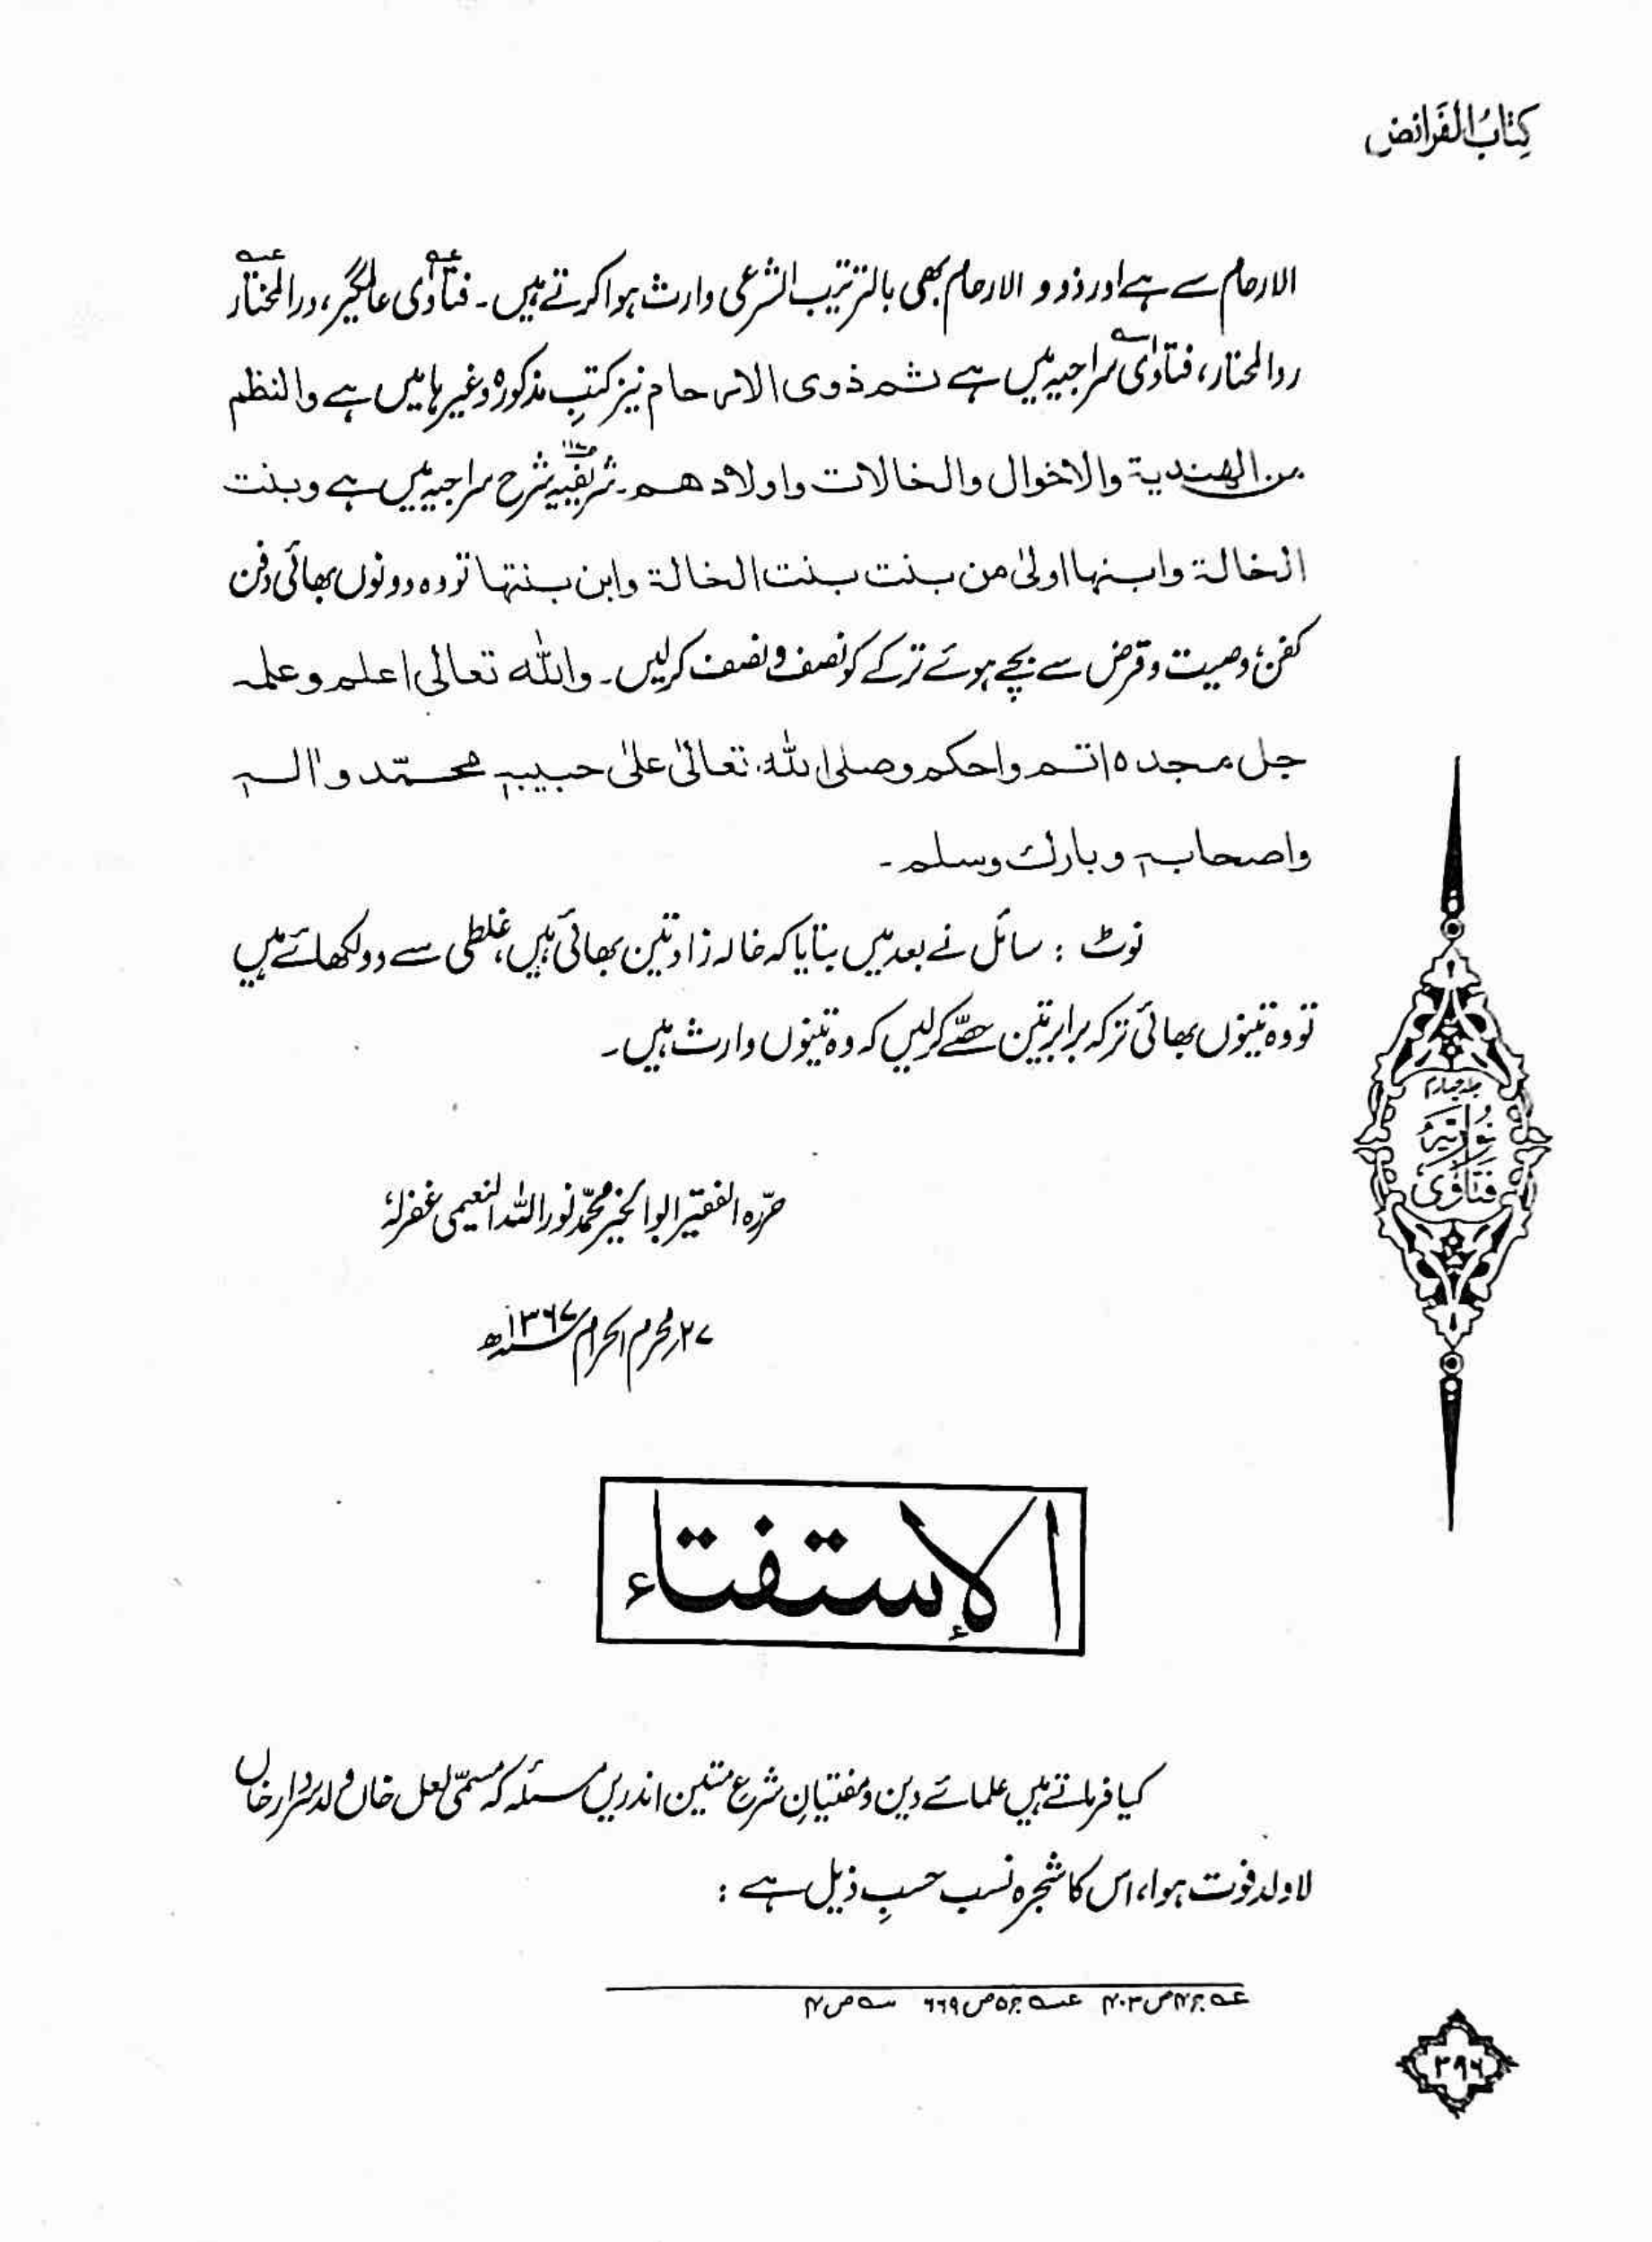 کِتَابُ الفَرائض
الارحام سے ہے اور ذوو الارحام بھی بالترتیب الشرعی وارث ہوا کرتے ہیں۔ فتاوٰی عہ عالمگیر، درالمختار عہ
ردالمحتار، فتاوٰی سہ سراجیہ میں ہے ثم ذوی الارحام نیز کتبِ مذکورہ وغیرہا میں ہے والنظم
من الهندية والاخوال والخالات واولادهم۔ شریفیہ شرح سراجیہ میں ہے وبنت
الخالة وابنها اولیٰ من بنت بنت الخالة وابن بنتها تو وہ دونوں بھائی دفن
کفن، وصیت و قرض سے بچے ہوئے ترکے کو نصف و نصف کرلیں۔ والله تعالى اعلم وعلمہ
جل مجدہ اتم واحکم وصلی اللہ تعالیٰ علیٰ حبیبہٖ محمّد واٰلہٖ
واصحابہٖ وبارك وسلم۔
نوٹ : سائل نے بعد میں بتایا کہ خالہ زاد تین بھائی ہیں، غلطی سے دو لکھائے ہیں
تو وہ تینوں بھائی ترکہ برابر تین حصّے کرلیں کہ وہ تینوں وارث ہیں۔
حرّرہ الفقیر ابوالخیر محمّد نور اللہ النعیمی غفرلہٗ
۲۷ محرم الحرام ۱۳۶۷ھ
جلد چہارم
نُورِیَّہ
فَتَاوٰی
الإستفتاء
کیا فرماتے ہیں علمائے دین و مفتیانِ شرعِ متین اندریں مسئلہ کہ مسمّی لعل خاں ولد سردار خاں
لاولد فوت ہوا، اس کا شجرہ نسب حسبِ ذیل ہے :
عہ ج۴ ص۴۰۳ عہ ج۵ ص۶۶۹ سہ ص۴
۳۹۶